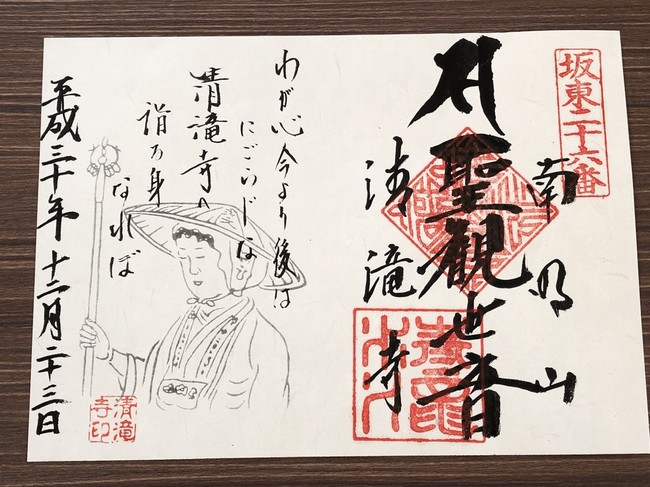 坂東二十六番
南明山
聖観世音
清滝寺
わが心今より後は
にごらじな
清滝寺へ
詣る身
なれば
平成三十年十二月二十三日
清滝
寺印